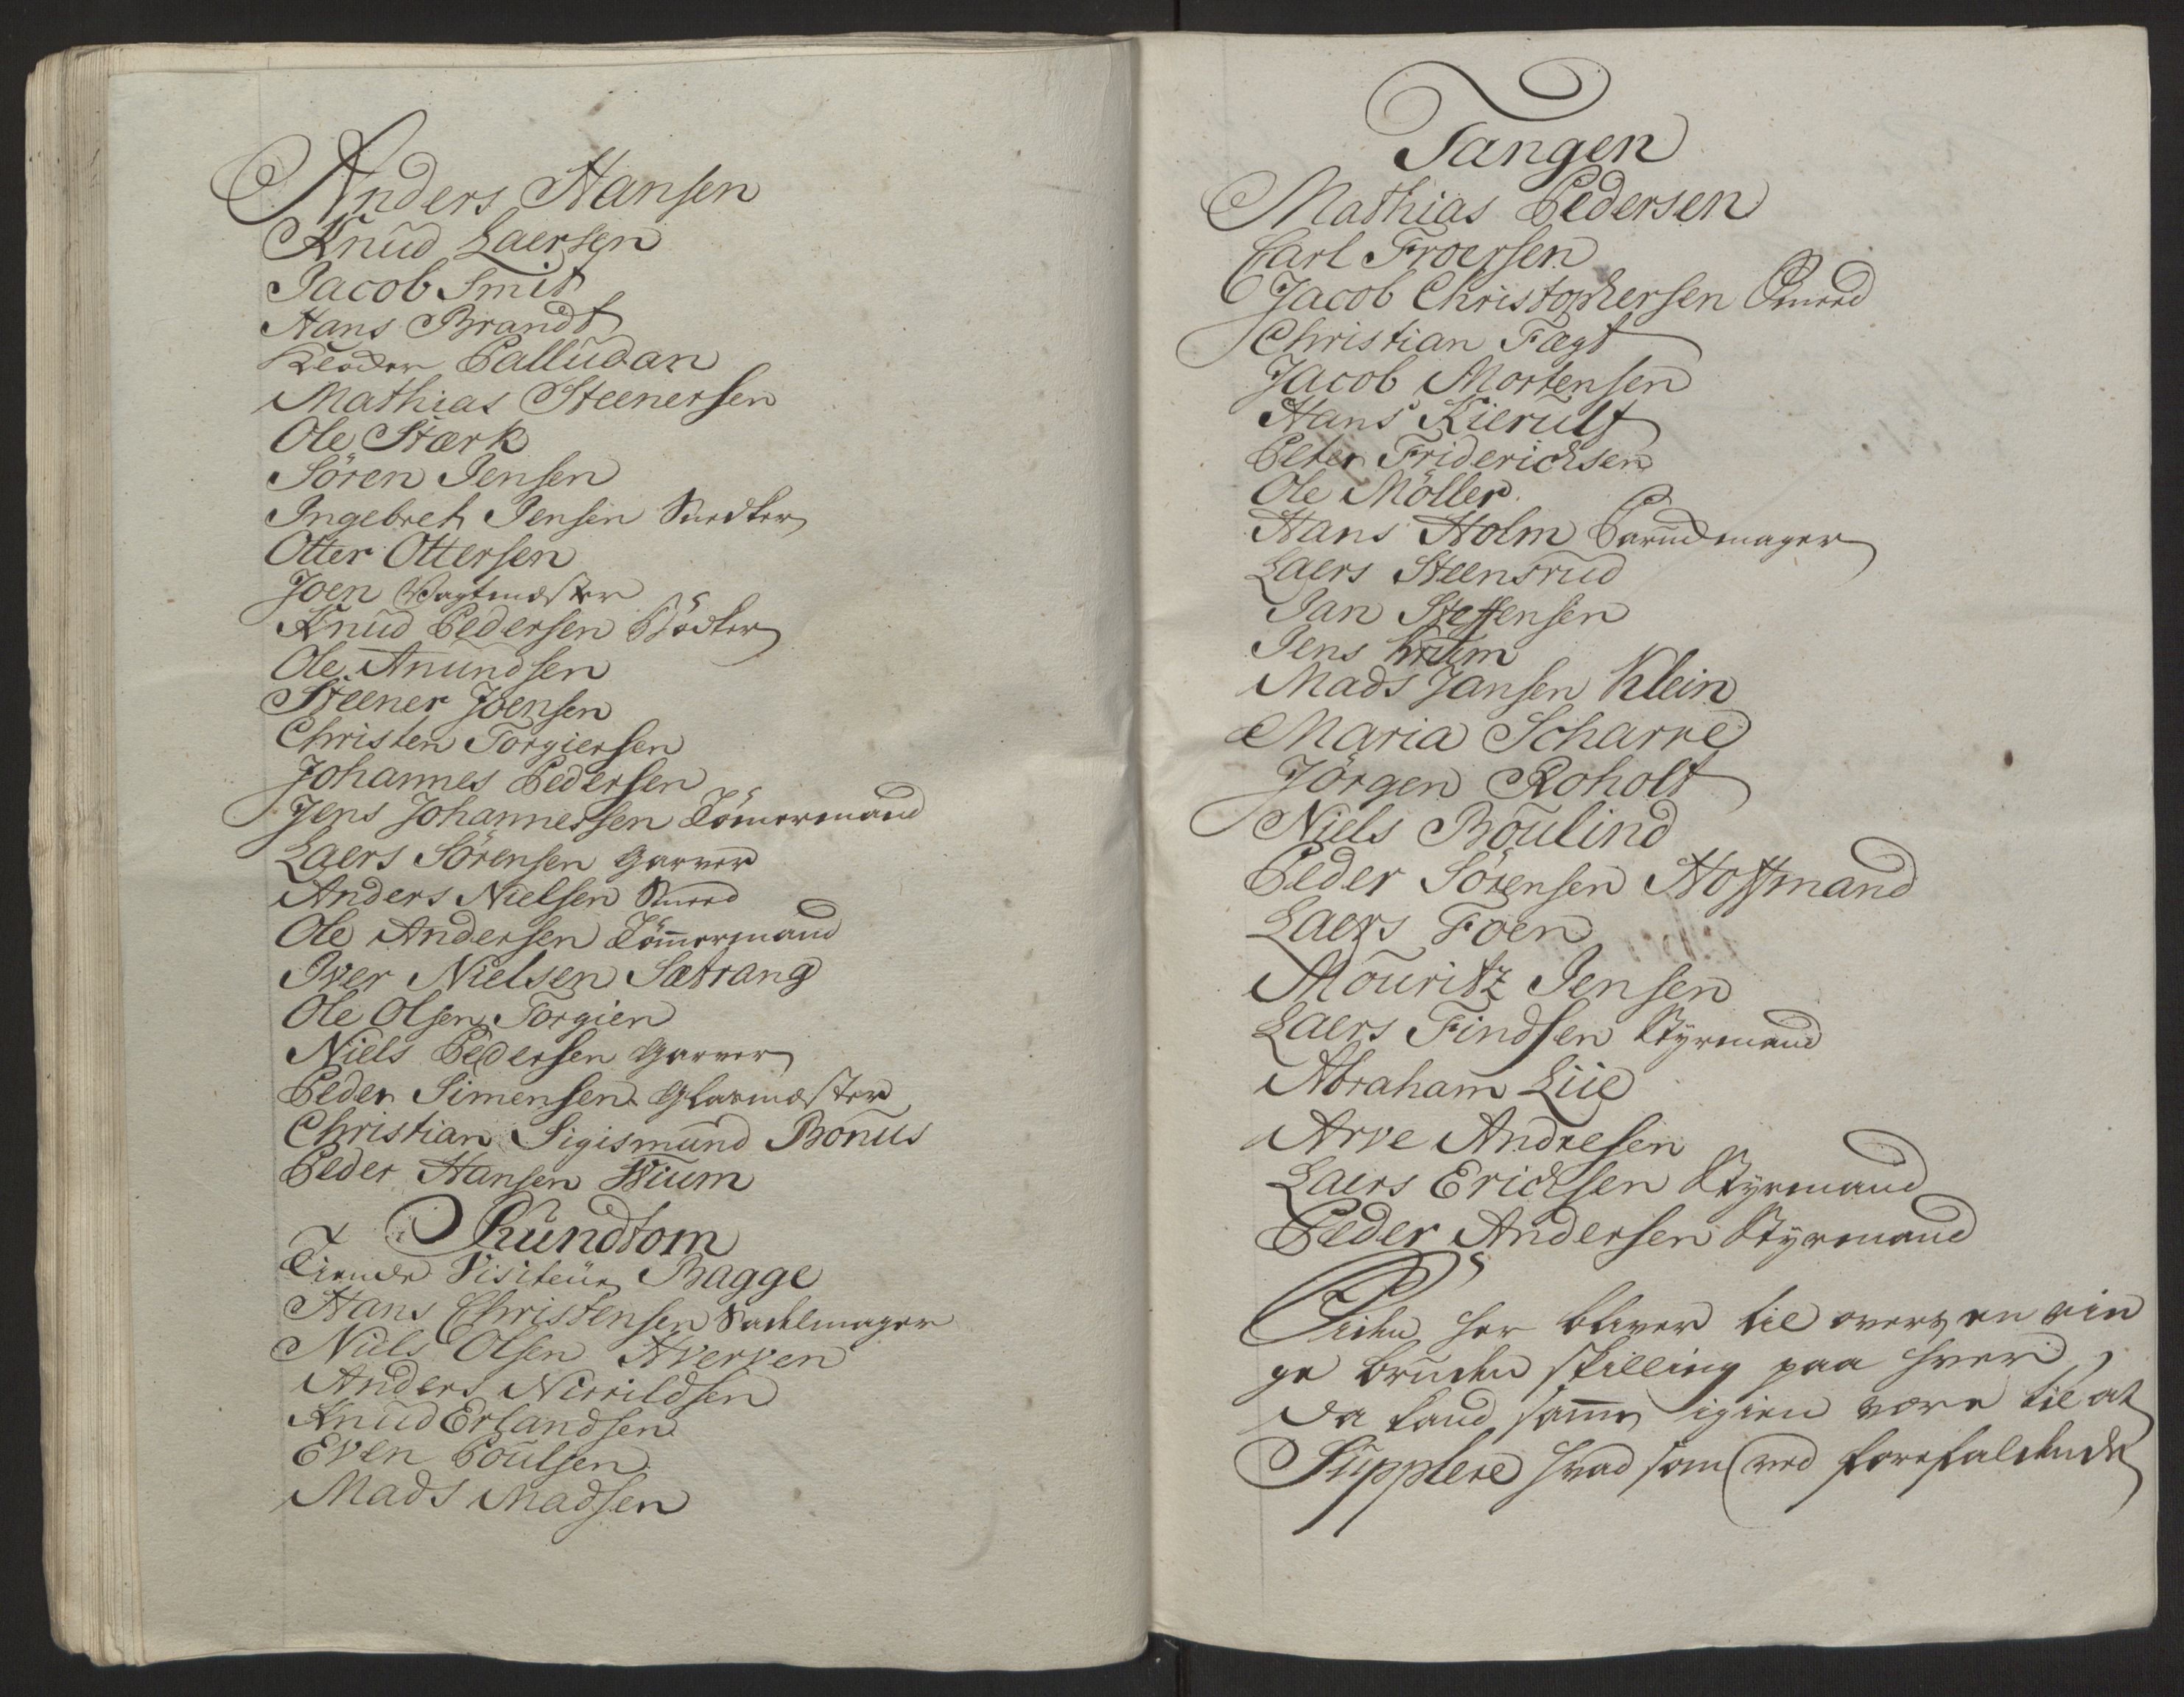 Anders Hansen
Knud Laersen
Jacob Smit
Hans Brandt
Kloder Palludan
Mathias Steenersen
Ole Stærk
Sören Jensen
Ingebret Jensen Snedker
Otter Ottersen
Joen Vagtmæster
Knud Pedersen Bödker
Ole Anundsen
Steener Joensen
Christen Torgiersen
Johannes Pedersen
Jens Johannessen Tömermand
Laers Sörensen Garver
Anders Nielsen Smed
Ole Andersen Tömmermand
Iver Nielsen Sætrang
Ole Olsen Torgien
Niels Pedersen Garver
Peder Simensen Glarmæster
Christian Sigismund Bonus
Peder Hansen Wium
Skundtom
Tiende Visiteur Bagge
Hans Christensen Sadelmager
Niels Olsen Averven
Anders Nirrildsen
Knud Erlandsen
Even Poulsen
Mads Madsen
Tangen
Mathias Pedersen
Carl Froersen
Jacob Christophersen Smed
Christian Fægt
Jacob Mortensen
Hans Kierulf
Peter Friderichsen
Ole Möller
Hans Holm Parudmager
Laers Steensrud
Jan Steffensen
Jens Krum
Mads Jansen Klein
Maria Scharre
Jörgen Roholt
Niels Boulind
Peder Sörensen Hoffmand
Laers Foen
Mouritz Jensen
Laers Findsen Styrmand
Abraham Liie
Arve Andresen
Laers Erichsen Styrmand
Peder Andersen Styrmand
Siden her bliver til overs en rin
ge bruden skilling paa hver,
da kand samme igien være til at
Supplere hvad som ved forefaldende